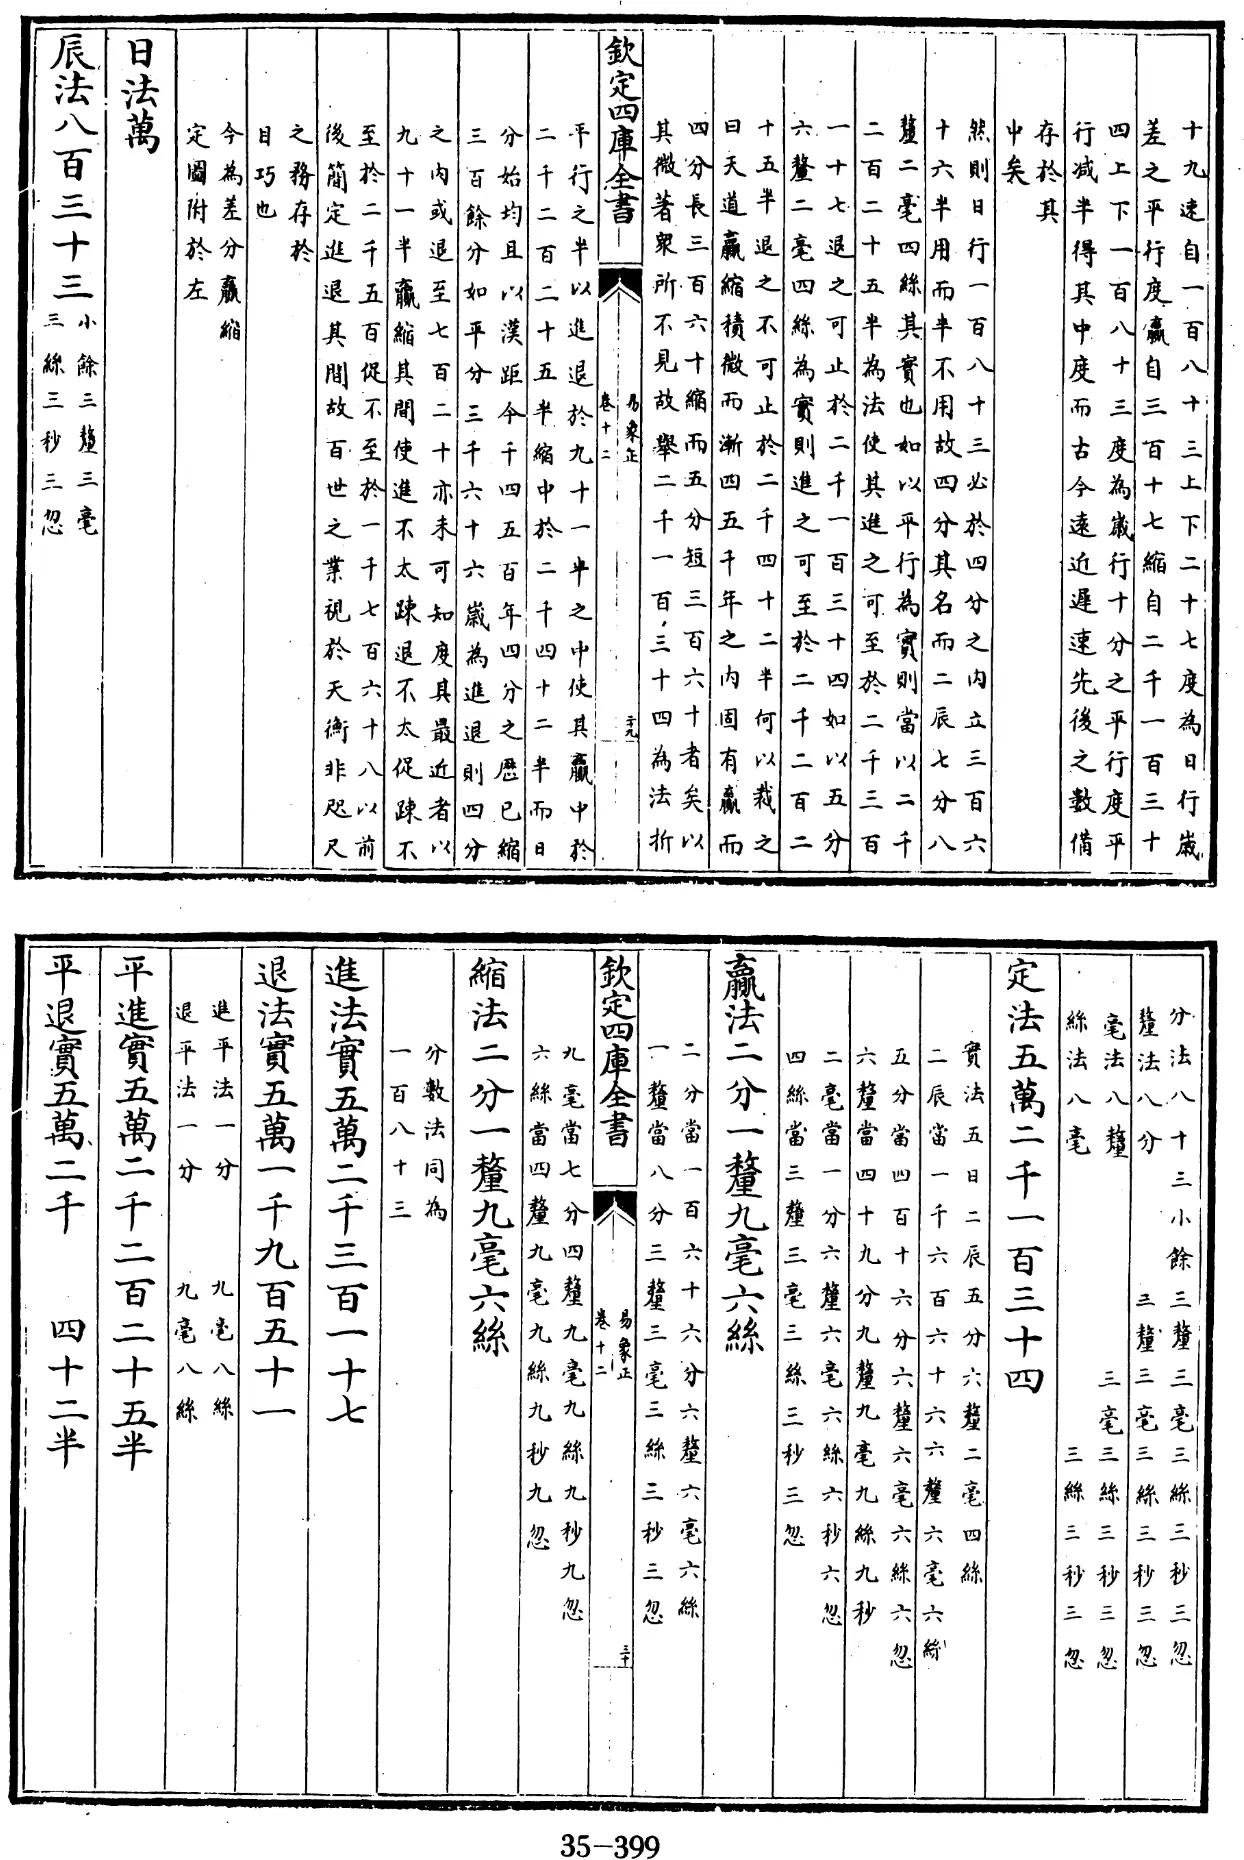 十九速自一百八十三上下二十七度為日行歲
差之平行度贏自三百十七縮自二千一百三十
四上下一百八十三度為歲行十分之平行度平
行减半得其中度而古今遠近遲速先後之數備
存於其
中矣
然則日行一百八十三必於四分之内立三百六
十六半用而半不用故四分其名而二辰七分八
釐二毫四絲其實也如以平行為實則當以二千
二百二十五半為法使其進之可至於二千三百
一十七退之可止於二千一百三十四如以五分
六釐二毫四絲為實則進之可至於二千二百二
十五半退之不可止於二千四十二半何以裁之
曰天道贏縮積微而漸四五千年之内固有贏而
四分長三百六十縮而五分短三百六十者矣以
其微著衆所不見故舉二千一百三十四為法折
欽定四庫全書
易象正
卷十二
二十九
平行之半以進退於九十一半之中使其贏中於
二千二百二十五半縮中於二千四十二半而日
分始均且以漢距今千四五百年四分之歷已縮
三百餘分如平分三千六十六歲為進退則四分
之内或退至七百二十亦未可知度其最近者以
九十一半贏縮其間使進不太踈退不太促踈不
至於二千五百促不至於一千七百六十八以前
後簡定進退其間故百世之業視於天衡非咫尺
之務存於
目巧也
今為差分贏縮
定圖附於左
日法萬
辰法八百三十三小餘三釐三毫
三絲三秒三忽
分法八十三小餘三釐三毫三絲三秒三忽
釐法八分 三釐三毫三絲三秒三忽
毫法八釐 三毫三絲三秒三忽
絲法八毫 三絲三秒三忽
定法五萬二千一百三十四
實法五日二辰五分六釐二毫四絲
二辰當一千六百六十六六釐六毫六絲
五分當四百十六分六釐六毫六絲六忽
六釐當四十九分九釐九毫九絲九秒
二毫當一分六釐六毫六絲六秒六忽
四絲當三釐三毫三絲三秒三忽
贏法二分一釐九毫六絲
二分當一百六十六分六釐六毫六絲
一釐當八分三釐三毫三絲三秒三忽
欽定四庫全書
易象正
卷十二
三十
九毫當七分四釐九毫九絲九秒九忽
六絲當四釐九毫九絲九秒九忽
縮法二分一釐九毫六絲
分數法同為
一百八十三
進法實五萬二千三百一十七
退法實五萬一千九百五十一
進平法一分 九毫八絲
退平法一分 九毫八絲
平進實五萬二千二百二十五半
平退實五萬二千 四十二半
35-399